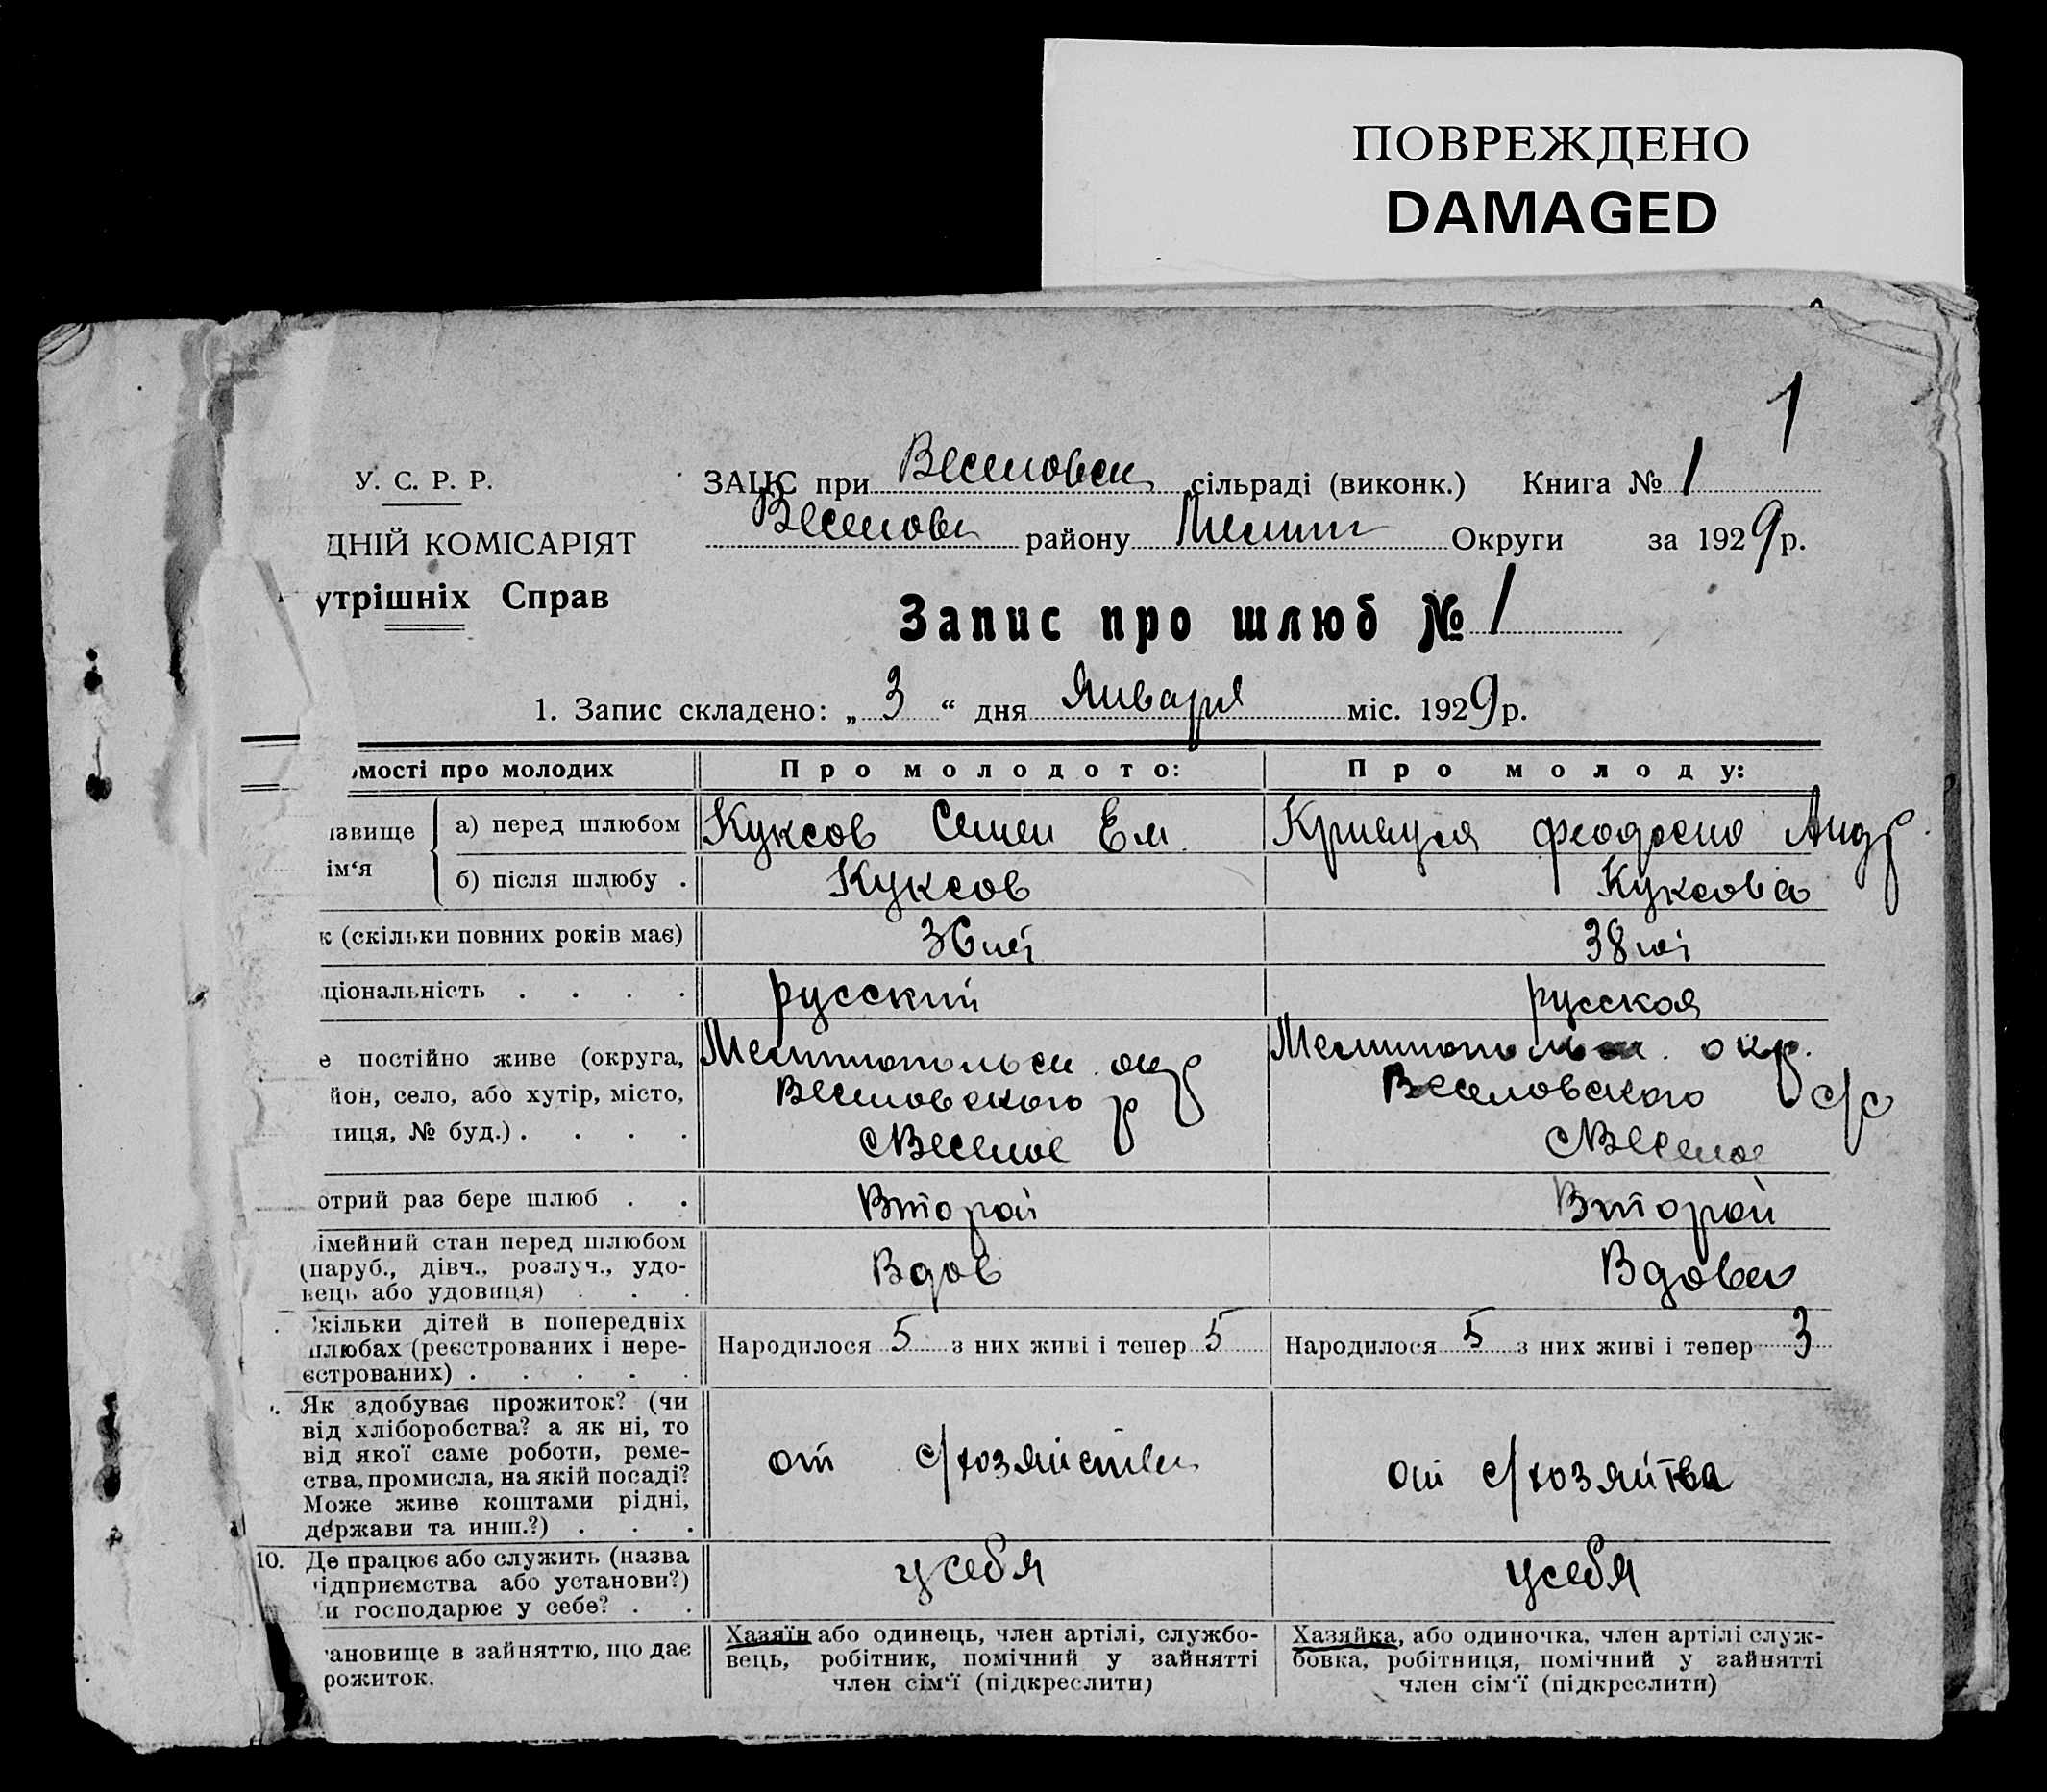 ПОВРЕЖДЕНО
DAMAGED
1
У. С. Р. Р.
ДНІЙ КОМІСАРІЯТ
утрішніх Справ
ЗАЦС при Веселовск сільраді (виконк.) Книга № 1
Веселовск району Мелит Округи за 1929 р.
Запис про шлюб № 1
1. Запис складено: „ 3 “ дня Января міс. 1929 р.
омості про молодих Про молодого: Про молоду:
ізвище а) перед шлюбом Куксов Семен Ем. Кривуля Феодосию Андр.
ім‘я б) після шлюбу . Куксов Куксова
к (скільки повних років має) 36 лет 38 лет
ціональність . . . . русский русская
е постійно живе (округа, Мелитопольск. окр Мелитопольск. окр.
йон, село, або хутір, місто, Веселовского р Веселовского с/с
лиця, № буд.) . . . . с Веселое с Веселое
отрий раз бере шлюб . . Второй Второй
імейний стан перед шлюбом
(паруб., дівч., розлуч., удо- Вдов Вдова
вець або удовиця) . . .
Скільки дітей в попередніх
шлюбах (реєстрованих і нере- Народилося 5 з них живі і тепер 5 Народилося 5 з них живі і тепер 3
єстрованих) . . . . .
Як здобуває прожиток? (чи
від хліборобства? а як ні, то
від якої саме роботи, реме- от с/хозяйства от с/хозяйтва
ства, промисла, на якій посаді?
Може живе коштами рідні,
держави та инш.?) . . .
10. Де працює або служить (назва у себя у себя
підприємства або установи?)
и господарює у себе? . .
ановище в зайняттю, що дає
рожиток.
Хазяїн або одинець, член артілі, службо-
вець, робітник, помічний у зайнятті
член сім‘ї (підкреслити)
Хазяйка, або одиночка, член артілі служ-
бовка, робітниця, помічний у зайнятті
член сім‘ї (підкреслити)